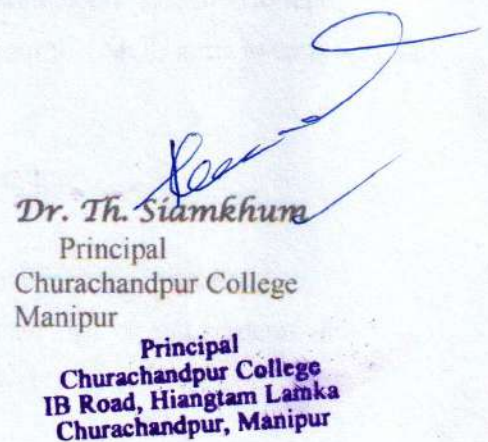 Dr. Th. Siamkhum
Principal
Churachandpur College
Manipur
Principal
Churachandpur College
IB Road, Hiangtam Lamka
Churachandpur, Manipur